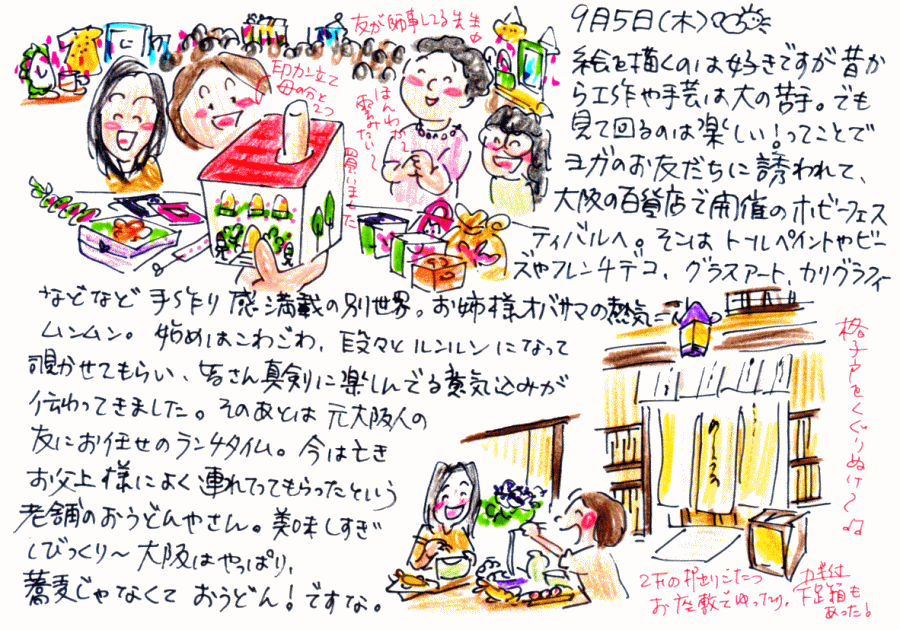 9月5日(木)
絵を描くのは好きですが昔か
ら工作や手芸は大の苦手。でも
見て回るのは楽しい!ってことで
ヨガのお友だちに誘われて、
大阪の百貨店で開催のホビーフェス
ティバルへ。そこは トールペイントやビー
ズやフレンチデコ、グラスアート、カリグラフィー
などなど 手作り感満載の別世界。お姉様オバサマの熱気に
ムンムン。 始めはこわごわ、段々とルンルンになって
覗かせてもらい、皆さん真剣に楽しんでる意気込みが
伝わってきました。そのあとは 元大阪人の
友にお任せのランチタイム。今は亡き
お父上様によく連れてってもらったという
老舗のおうどんやさん。美味しすぎ
てびっくり〜 大阪はやっぱり、
蕎麦じゃなくて おうどん!ですな。
友が師事してる先生
印カン立て
母の分と
2つ
買いました
ほんわか〜
雲みたい〜
格子戸をくぐりぬけ〜
2Fの掘りごたつ
お座敷でゆったり、
カギ付
下足箱も
あった!